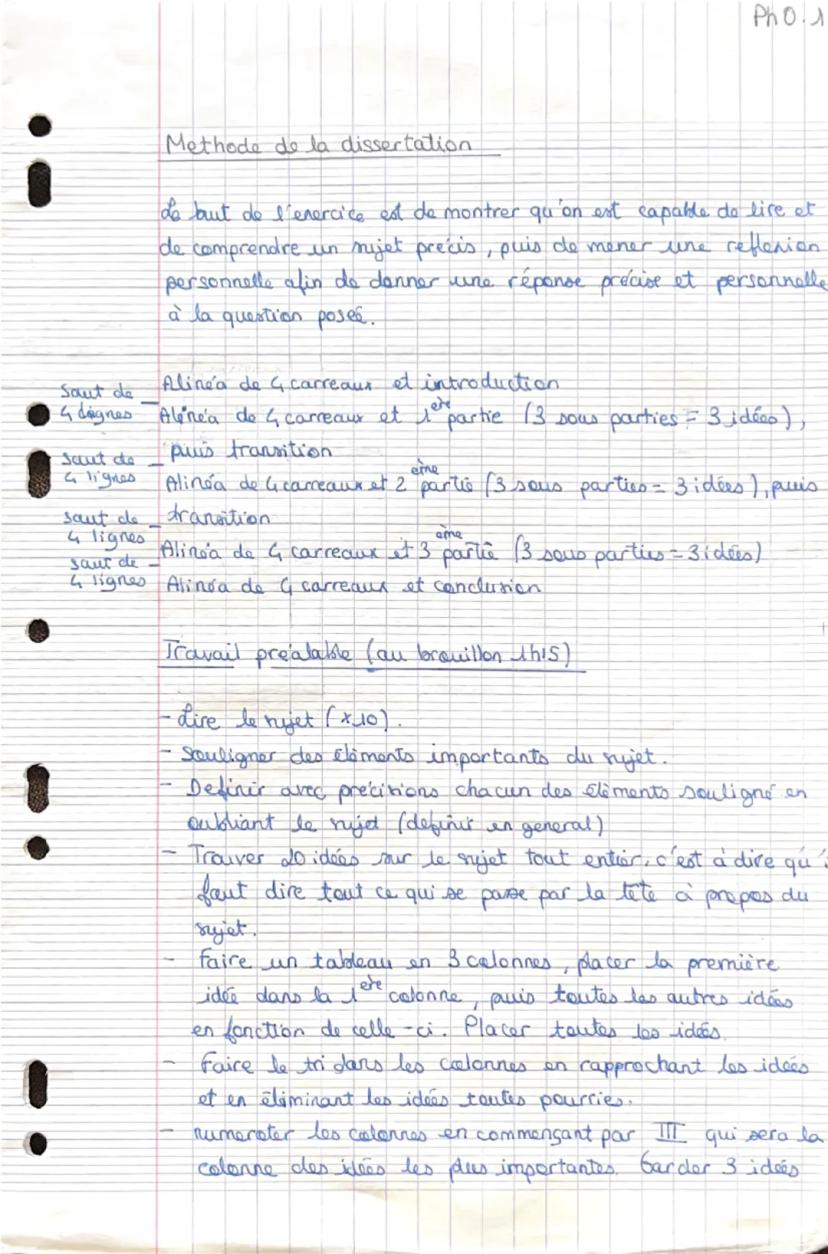 PhO.1
Methode de la dissertation
Le but de l'exercice est de montrer qu'on est capable de lire et
de comprendre un sujet précis, puis de mener une reflexion
personnelle afin de donner une réponse précise et personnelle
à la question poseé.
Alinéa de 4 carreaux et introduction
saut de
4 lignes
Alinéa de 4 carreaux et 1ère partie (3 sous parties = 3 idées),
puis transition
saut de
4 lignes
Alinéa de 4 carreaux et 2ème partie (3 sous parties = 3 idées), puis
transition
saut de
4 lignes
Alinéa de 4 carreaux et 3ème partie (3 sous parties = 3 idées)
saut de
4 lignes
Alinéa de 4 carreaux et conclusion
Travail préalable (au brouillon 1h15)
- Lire le sujet (x10).
- Souligner des éléments importants du sujet.
- Definir avec précisions chacun des éléments souligné en
oubliant le sujet (definir en general)
- Trouver 20 idées sur le sujet tout entier, c'est à dire qu'i
faut dire tout ce qui se passe par la tête à propos du
sujet.
- Faire un tableau en 3 colonnes, placer la première
idée dans la 1ère colonne, puis toutes les autres idées
en fonction de celle-ci. Placer toutes les idées.
- Faire le tri dans les colonnes en rapprochant les idées
et en éliminant les idées toutes pourries.
- numeroter les colonnes en commençant par III qui sera la
colonne des idées les plus importantes. Garder 3 idées